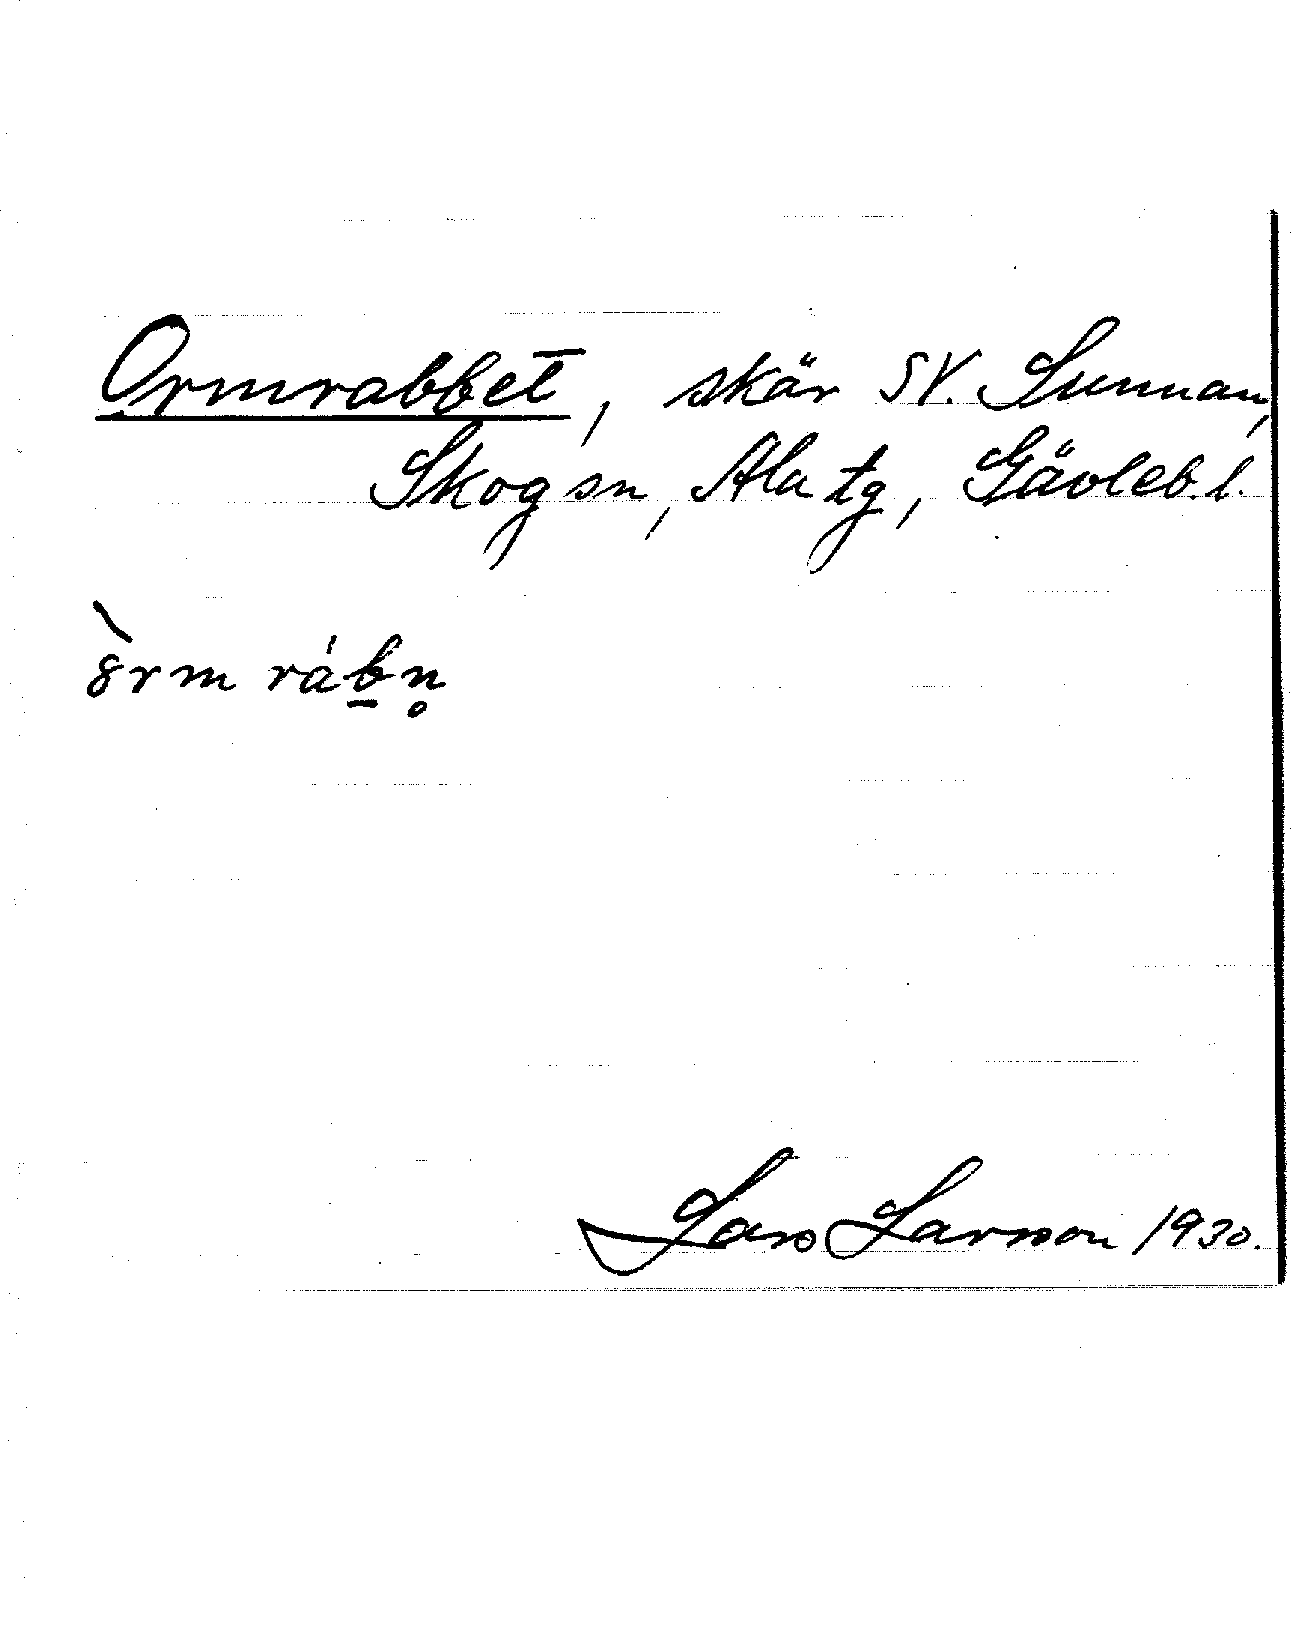 Ormrabbet, skär SV. Sunnan,
Skog sn, Ala tg, Gävleb. l.
ȣ̀rm ráb̠n̥
Lars Larsson 1930.